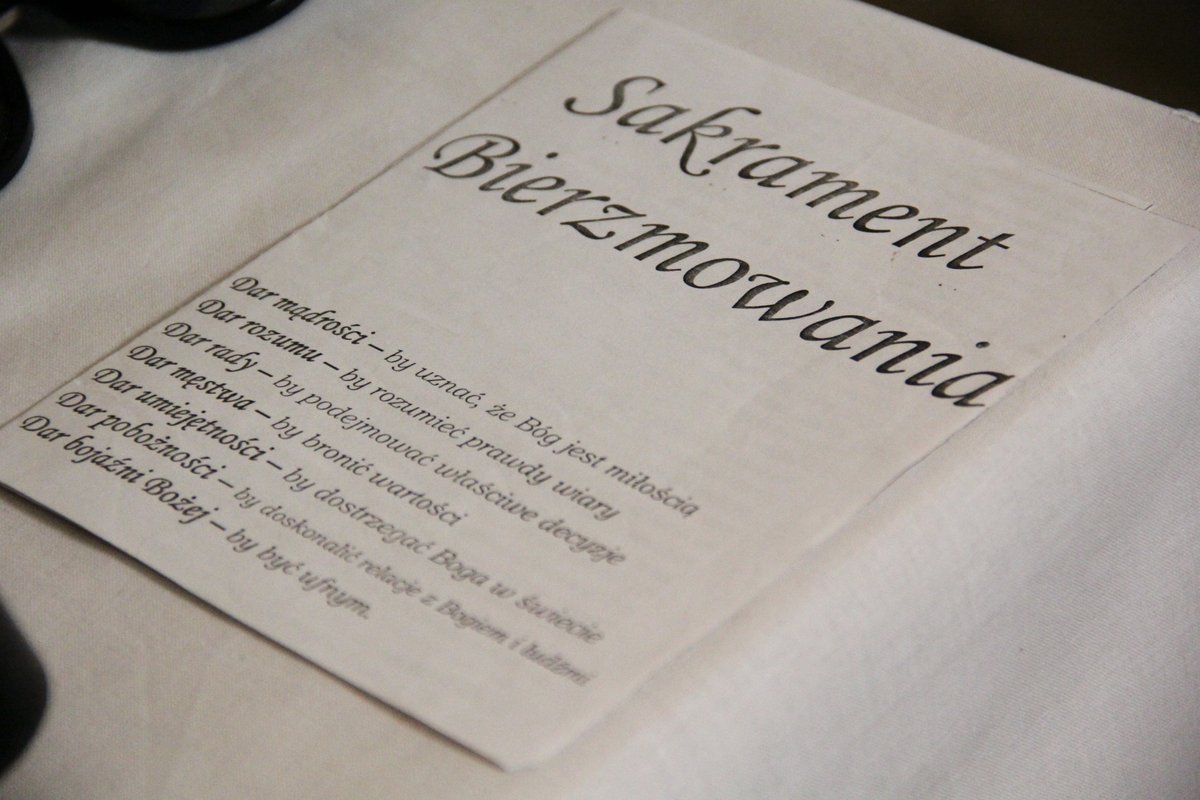 Sakrament
Bierzmowania
Dar mądrości – by uznać, że Bóg jest miłością
Dar rozumu – by rozumieć prawdy wiary
Dar rady – by podejmować właściwe decyzje
Dar męstwa – by bronić wartości
Dar umiejętności – by dostrzegać Boga w świecie
Dar pobożności – by doskonalić relacje z Bogiem i ludźmi
Dar bojaźni Bożej – by być ufnym.